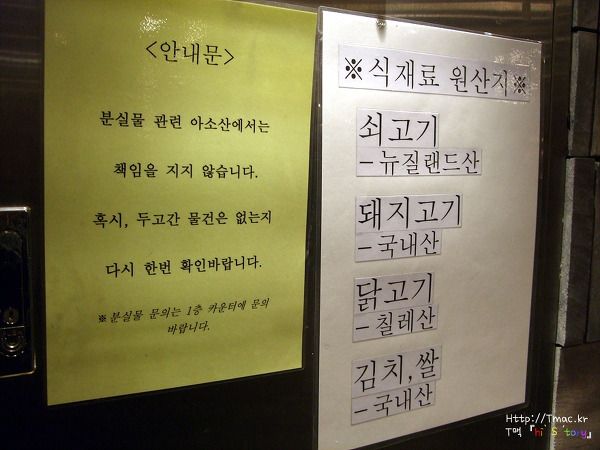 <안내문>
분실물 관련 아소산에서는
책임을 지지 않습니다.
혹시, 두고간 물건은 없는지
다시 한번 확인바랍니다.
※분실물 문의는 1층 카운터에 문의
바랍니다.
※식재료 원산지※
쇠고기
-뉴질랜드산
돼지고기
-국내산
닭고기
-칠레산
김치,쌀
-국내산
Http://Tmac.kr
T맥『hi S tory』